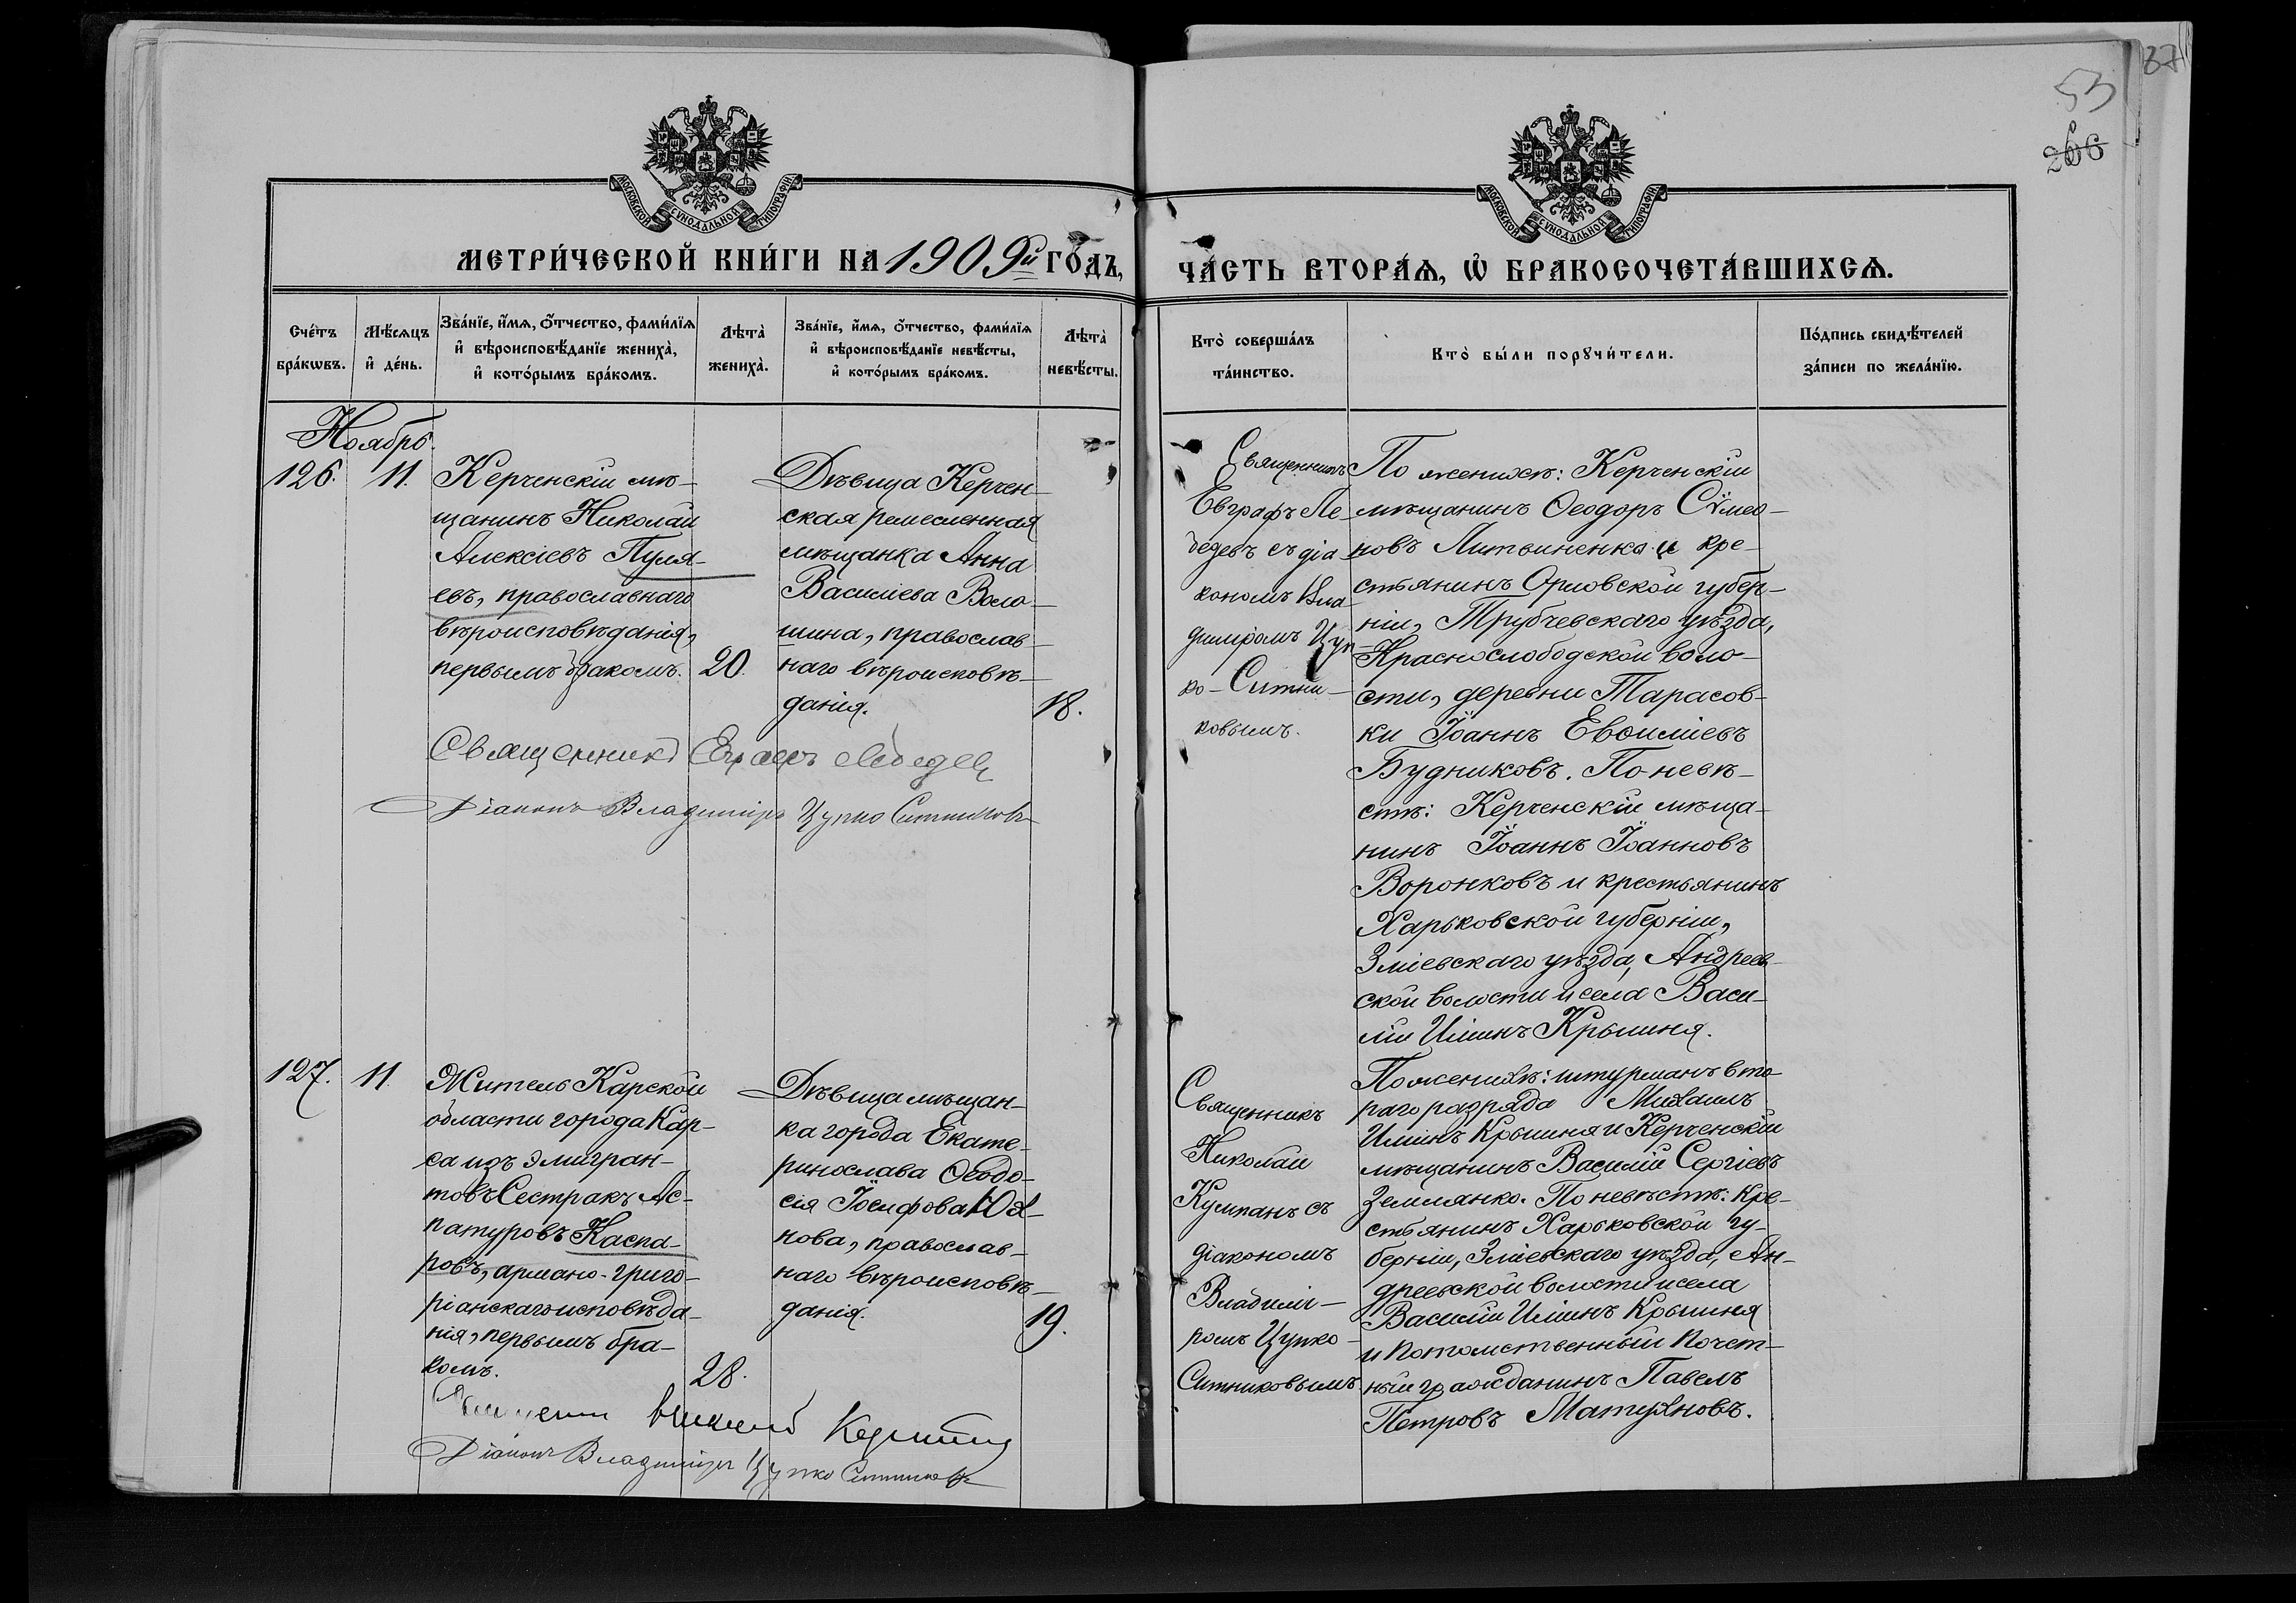 37
53
266
МОСКОВСКОЙ СѴНОДАЛЬНОЙ ТИПОГРАФІИ
МОСКОВСКОЙ СѴНОДАЛЬНОЙ ТИПОГРАФІИ
МЕТРИ́ЧЕСКОЙ КНИ́ГИ НА 1909й ГО́ДЪ,
ЧА́СТЬ ВТОРА́Ѧ, Ѡ҆ БРАКОСОЧЕТА́ВШИХСѦ.
Сче́тъ
бра́кѡвъ.
Мѣ́сѧцъ
и҆ де́нь.
Зва́нїе, и҆́мѧ, ѻ҆́тчество, фами́лїѧ
и҆ вѣроисповѣ́данїе жениха̀,
и҆ кото́рымъ бра́комъ.
Лѣта̀
жениха̀.
Зва́нїе, и҆́мѧ, ѻ҆́тчество, фами́лїѧ
и҆ вѣроисповѣ́данїе невѣ́сты,
и҆ кото́рымъ бра́комъ.
Лѣта̀
невѣ́сты.
Кто̀ соверша́лъ
та́инство.
Кто̀ бы́ли порꙋчи́тели.
По́дпись свидѣ́телей
за́писи по жела́нїю.
Ноябрь.
126.
11.
Керченскій мѣ-
щанинъ Николай
Алексіевъ Пуля-
евъ, православнаго
вѣроисповѣданія,
первымъ бракомъ.
20.
Дѣвица Керчен-
ская ремесленная
мѣщанка Анна
Василіева Воло-
шина, православ-
наго вѣроисповѣ-
данія.
18.
Священникъ
Евграфъ Ле-
бедевъ съ діа-
кономъ Вла-
диміромъ Цуп-
ко-Ситни-
ковымъ.
По женихѣ: Керченскій
мѣщанинъ Ѳеодоръ Сѵмео-
новъ Литвиненко и кре-
стьянинъ Орловской губер-
ніи, Трубчевскаго уѣзда,
Краснослободской воло-
сти, деревни Тарасов-
ки Іоаннъ Евѳиміевъ
Будниковъ. По невѣ-
стѣ: Керченскій мѣща-
нинъ Іоаннъ Іоанновъ
Воронковъ и крестьянинъ
Харьковской губерніи,
Зміевскаго уѣзда, Андреев-
ской волости и села Васи-
лій Ильинъ Крышня.
Священникъ Евграфъ Лебедевъ
Діаконъ Владиміръ Цупко Ситниковъ
127.
11.
Житель Карской
области города Кар-
са изъ эмигран-
товъ Сестракъ Ас-
патуровъ Каспа-
ровъ, армяно-григо-
ріанскаго исповѣда-
нія, первымъ бра-
комъ.
28.
Дѣвица мѣщан-
ка города Екате-
ринослава Ѳеодо-
сія Іосифова Юх-
нова, православ-
наго вѣроисповѣ-
данія.
19.
Священникъ
Николай
Кумпанъ съ
діакономъ
Владимі-
ромъ Цупко-
Ситниковымъ
По женихѣ: штурманъ вто-
раго разряда Михаилъ
Ильинъ Крышня и Керченскій
мѣщанинъ Василій Сергіевъ
Землянко. По невѣстѣ: кре-
стьянинъ Харьковской гу-
берніи, Зміевскаго уѣзда, Ан-
дреевской волости и села
Василій Ильинъ Крышня
и потомственный почет-
ный гражданинъ Павелъ
Петровъ Матухновъ.
Діаконъ Владиміръ Цупко Ситниковъ